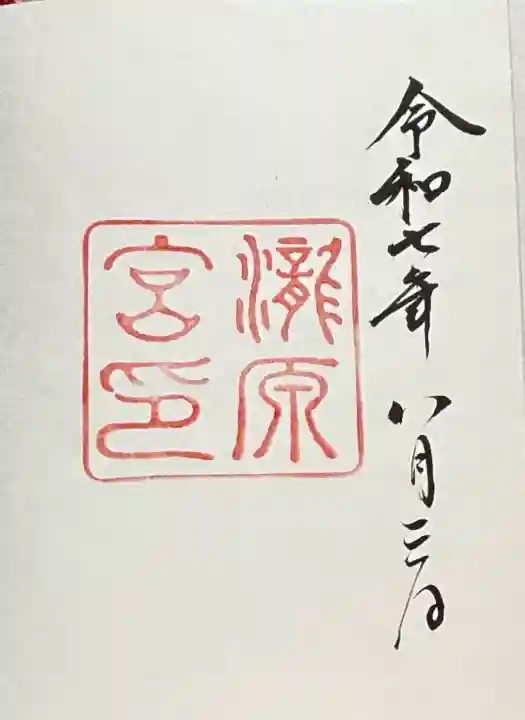 令和七年八月三日
瀧原
宮印